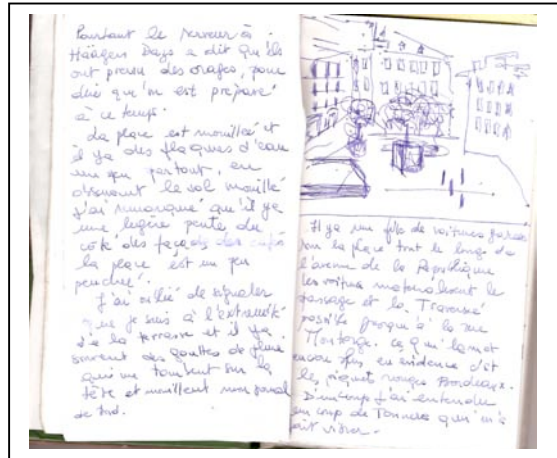 Pourtant le serveur à
Häagen Dazs a dit qu'ils
ont prevu des orages, pour
dire qu'on est préparé
à ce temps.
La place est mouilleé et
il ya des flaques d'eau
un peu partout, en
observant le sol mouillé
j'ai rumarqué qu'il ya
une legère pente du
côté des façades des cafés
la place est un peu
penchée.
J'ai oblié de signaler
que je suis à l'extremité
de la terrasse et il ya
souvent des gouttes de pluie
qui me tombent sur la
tête et mouillent mon journal
de bord.
Il ya une file de voitures garées
sur la place tout le long de
l'avenue de la République
les voitures materialisent le
passage et la Traversé
possible jusqu'à la rue
Montorge. ce qui la met
encore plus en evidence c'est
les piquets rouges Bordeaux.
D'un coup j'ai entendu
un coup de Tonnerre qui m'a
fait vibrer.